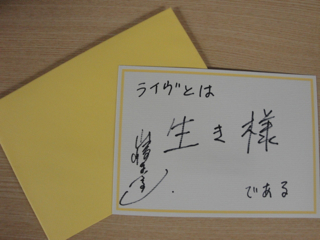 ライヴとは
生き様
である